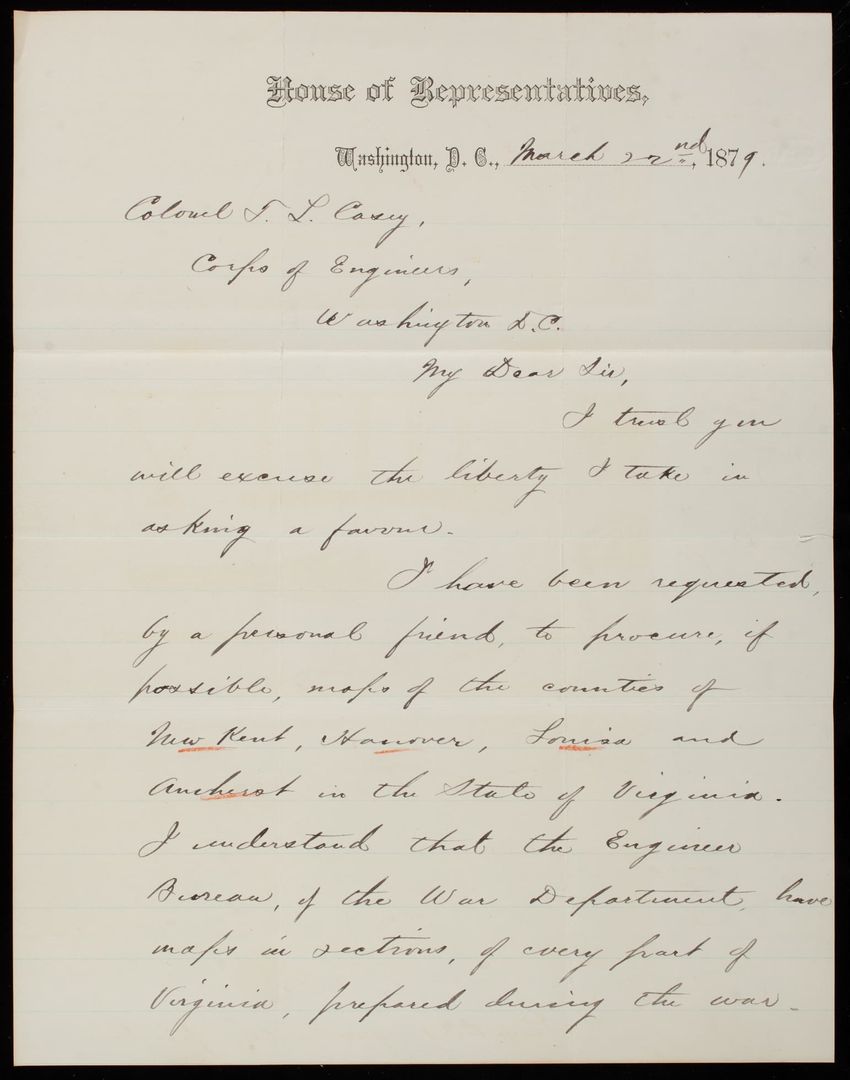 House of Representatives,
Washington, D. C., March 22nd, 1879.
Colonel T. L. Casey,
Corps of Engineers,
Washington D.C.
My Dear Sir,
I trust you
will excuse the liberty I take in
asking a favour.
I have been requested,
by a personal friend, to procure, if
possible, maps of the counties of
New Kent, Hanover, Louisa and
Amherst in the State of Virginia.
I understand that the Engineer
Bureau, of the War Department, have
maps in sections, of every part of
Virginia, prepared during the war.